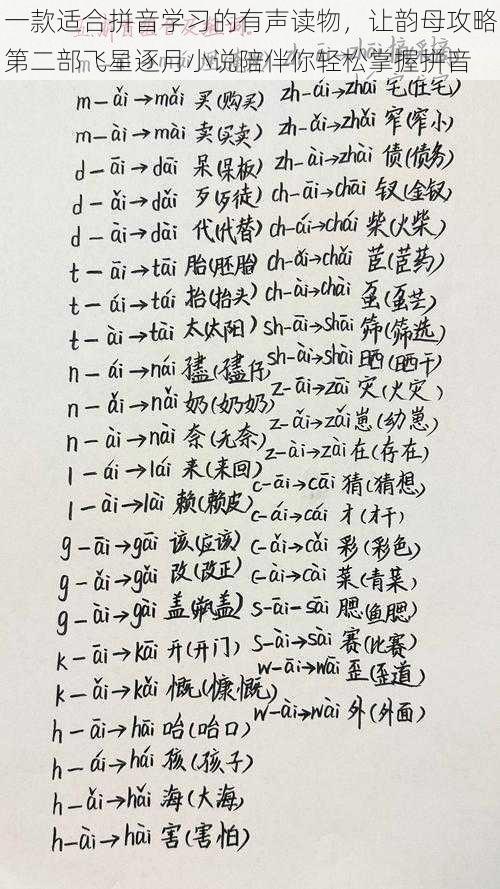 一款适合拼音学习的有声读物，让韵母攻略
第二部飞星逐月小说陪伴你轻松掌握拼音
m-ǎi→mǎi 买(购买)
m-ài→mài 卖(买卖)
d-āi→dāi 呆(呆板)
d-ǎi→dǎi 歹(歹徒)
d-ài→dài 代(代替)
t-āi→tāi 胎(胚胎)
t-ái→tái 抬(抬头)
t-ài→tài 太(太阳)
n-ái→nái 孻(孻仔)
n-ǎi→nǎi 奶(奶奶)
n-ài→nài 奈(无奈)
l-ái→lái 来(来回)
l-ài→lài 赖(赖皮)
g-āi→gāi 该(应该)
g-ǎi→gǎi 改(改正)
g-ài→gài 盖(瓶盖)
k-āi→kāi 开(开门)
k-ǎi→kǎi 慨(慷慨)
h-āi→hāi 咍(咍口)
h-ái→hái 孩(孩子)
h-ǎi→hǎi 海(大海)
h-ài→hài 害(害怕)
zh-ái→zhái 宅(住宅)
zh-ǎi→zhǎi 窄(窄小)
zh-ài→zhài 债(债务)
ch-āi→chāi 钗(金钗)
ch-ái→chái 柴(火柴)
ch-ǎi→chǎi 茝(茝药)
ch-ài→chài 虿(虿芒)
sh-āi→shāi 筛(筛选)
sh-ài→shài 晒(晒干)
z-āi→zāi 灾(火灾)
z-ǎi→zǎi 崽(幼崽)
z-ài→zài 在(存在)
c-āi→cāi 猜(猜想)
c-ái→cái 才(才干)
c-ǎi→cǎi 彩(彩色)
c-ài→cài 菜(青菜)
s-āi-sāi 腮(鱼腮)
s-ài→sài 赛(比赛)
w-āi→wāi 歪(歪道)
w-ài→wài 外(外面)